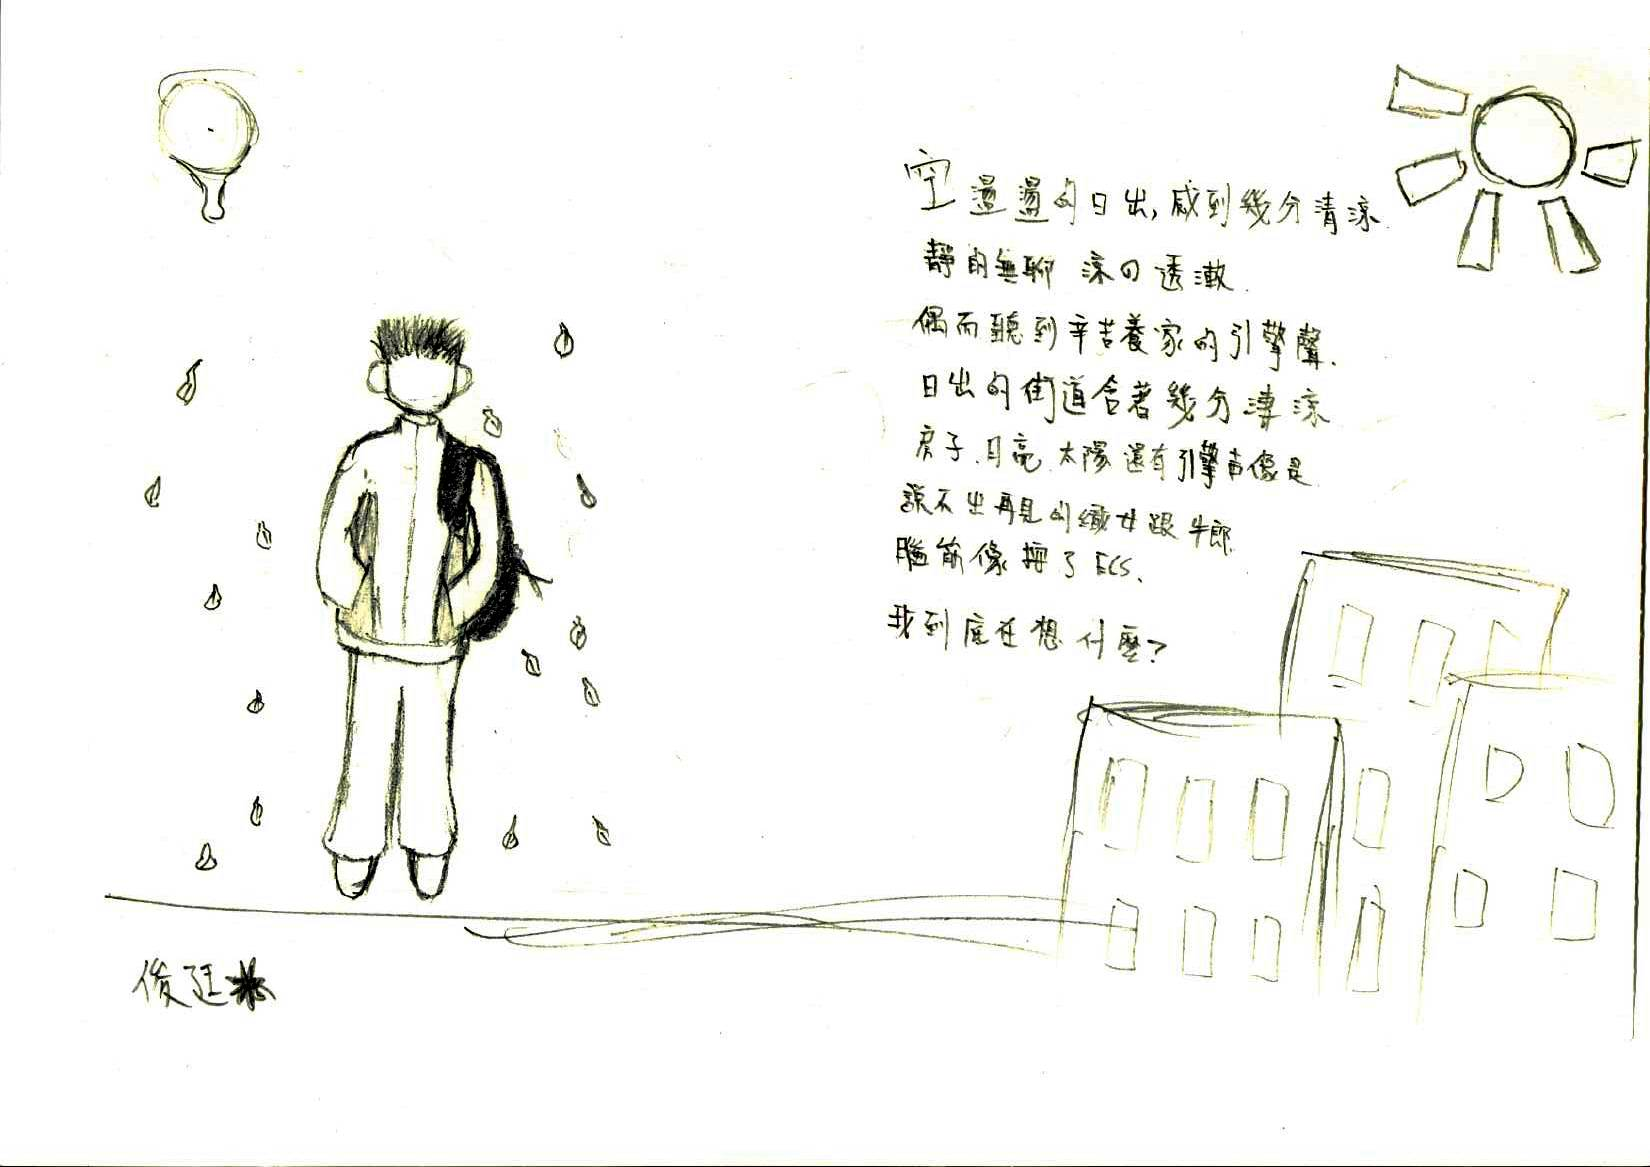 空盪盪的日出,感到幾分清涼.
靜的無聊 涼的透澈.
偶而聽到辛苦養家的引擎聲.
日出的街道含著幾分淒涼
房子.月亮.太陽還有引擎声像是
說不出再見的織女跟牛郎.
腦筋像按了ECS.
我到底在想什麼?
俊廷